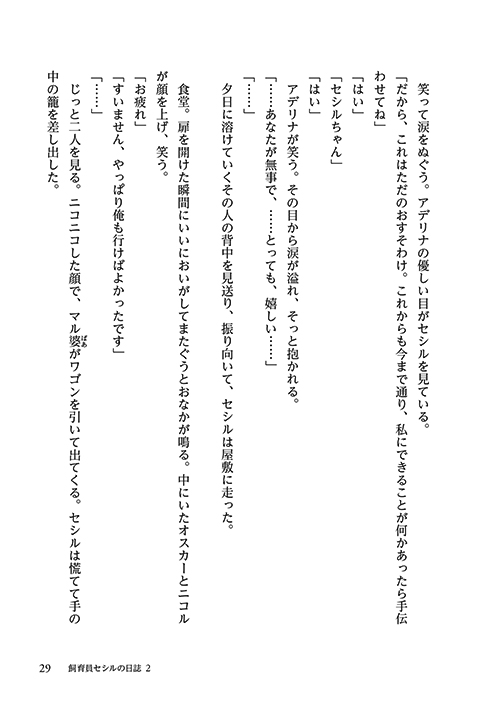 笑って涙をぬぐう。アデリナの優しい目がセシルを見ている。
「だから、これはただのおすそわけ。これからも今まで通り、私にできることが何かあったら手伝
わせてね」
「はい」
「セシルちゃん」
「はい」
アデリナが笑う。その目から涙が溢れ、そっと抱かれる。
「……あなたが無事で、……とっても、嬉しい……」
「……」
夕日に溶けていくその人の背中を見送り、振り向いて、セシルは屋敷に走った。
食堂。扉を開けた瞬間にいいにおいがしてまたぐうとおなかが鳴る。中にいたオスカーとニコル
が顔を上げ、笑う。
「お疲れ」
「すいません、やっぱり俺も行けばよかったです」
「……」
じっと二人を見る。ニコニコした顔で、マル婆ばあがワゴンを引いて出てくる。セシルは慌てて手の
中の籠を差し出した。
29 飼育員セシルの日誌 2